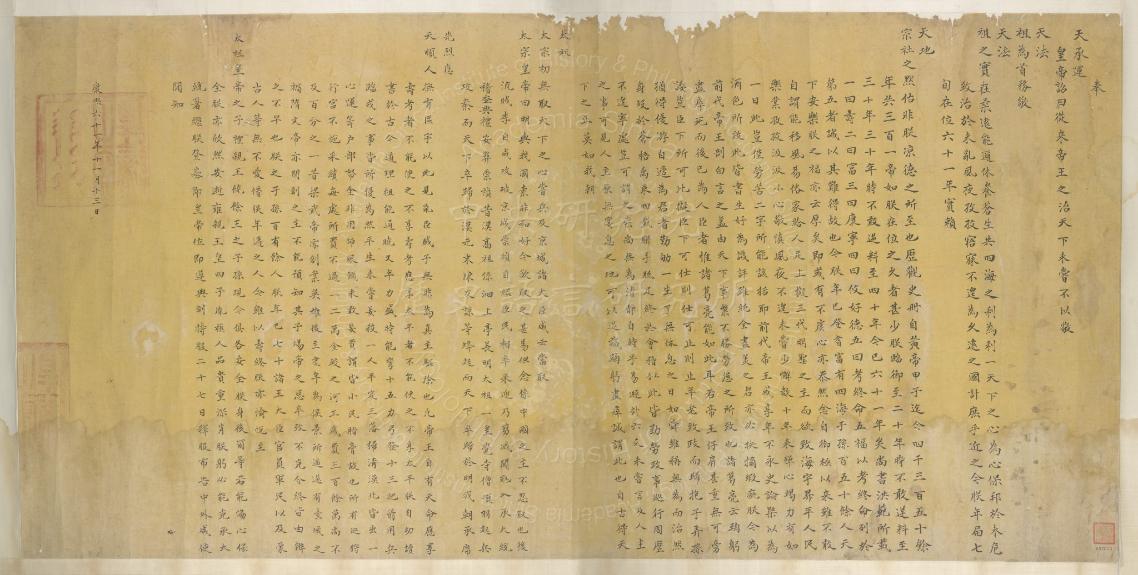 奉
天承運
皇帝詔曰從來帝王之治天下未嘗不以敬
天法
祖為首務敬
天法
祖之實在柔遠能邇休養蒼生共四海之利為利一天下之心為心保邦於未危
致治於未亂夙夜孜孜寤寐不遑為久遠之國計庶乎近之今朕年屆七
旬在位六十一年實賴
天地
宗社之默佑非朕涼德之所至也歷觀史冊自黃帝甲子迄今四千三百五十餘
年共三百一帝如朕在位之久者甚少朕臨御至二十年時不敢逆料至
三十年三十年時不敢逆料至四十年今已六十一年矣尚書洪範所載
一曰壽二曰富三曰康寧四曰攸好德五曰考終命五福以考終命列於
第五者誠以其難得故也今朕年已登耆富有四海子孫百五十餘人天
下安樂朕之福亦云厚矣即或有不虞心亦泰然念自御極以來雖不敢
自謂能移風易俗家給人足上擬三代明聖之主而欲致海宇昇平人民
樂業孜孜汲汲小心敬慎夙夜不遑未嘗少懈數十年來殫心竭力有如
一日此豈僅勞苦二字所能該括耶前代帝王或享年不永史論槩以為
酒色所致此皆書生好為譏評雖純全盡美之君亦必抉摘瑕疵朕今為
前代帝王剖白言之蓋由天下事繁不勝勞憊之所致也諸葛亮云鞠躬
盡瘁死而後已為人臣者惟諸葛亮能如此耳若帝王仔肩甚重無可旁
諉豈臣下所可比擬臣下可仕則仕可止則止年老致政而歸抱子弄孫
猶得優游自適為君者勤劬一生了無休息之日如舜雖稱無為而治然
身歿於蒼梧禹乘四載胼手胝足終於會稽似此皆勤勞政事巡行周歷
不遑寧處豈可謂之崇尚無為清靜自持乎易遯卦六爻未嘗言及人主
之事可見人主原無宴息之地可以退藏鞠躬盡瘁誠謂此也自古得天
下之正莫如我朝
太祖
太宗初無取天下之心嘗兵及京城諸大臣咸云當取
太宗皇帝曰明與我國素非和好今欲取之甚易但念係中國之主不忍取也後
流賊李自成攻破京城崇禎自縊臣民相率來迎乃翦滅闖寇入承大統
稽查典禮安葬崇禎昔漢高祖係泗上亭長明太祖一皇覺寺僧項羽起兵
攻秦而天下卒歸於漢元末陳友諒等蜂起而天下卒歸於明我朝承席
先烈應
天順人撫有區宇以此見亂臣賊子無非為真主驅除也凡帝王自有天命應享
壽考者不能使之不享壽考應享太平者不能使之不享太平朕自幼讀
書於古今道理粗能通曉又年力盛時能彎十五力弓發十三把箭用兵
臨戎之事皆所優為然平生未嘗妄殺一人平定三藩掃清漠北皆出一
心運籌戶部帑金非用師賑饑未敢妄費謂皆小民脂膏故也所有巡狩
行宮不施采繢每處所費不過一二萬金較之河工歲費三百餘萬尚不
及百分之一昔梁武帝亦創業英雄後至耄年為侯景所逼遂有臺城之
禍隋文帝亦開創之主不能預知其子煬帝之惡卒致不克令終皆由辨
之不早也朕之子孫百有餘人朕年已七十諸王大臣官員軍民以及蒙
古人等無不愛惜朕年邁之人今雖以壽終朕亦愉悅至
太祖皇
帝之子禮親王饒餘王之子孫現今俱各安全朕身後爾等若能協心保
全朕亦欣然安逝雍親王皇四子胤禛人品貴重深肖朕躬必能克承大
統著繼朕登基即皇帝位即遵典制持服二十七日釋服布告中外咸使
聞知
康熙六十一年十一月十三日